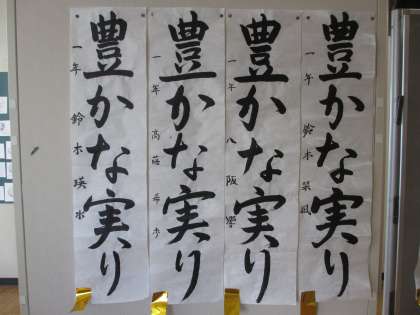 豊かな実り
一年 鈴木
豊かな実り
一年 八阪
豊かな実り
一年 高
豊かな実り
一年 鈴木瑛水